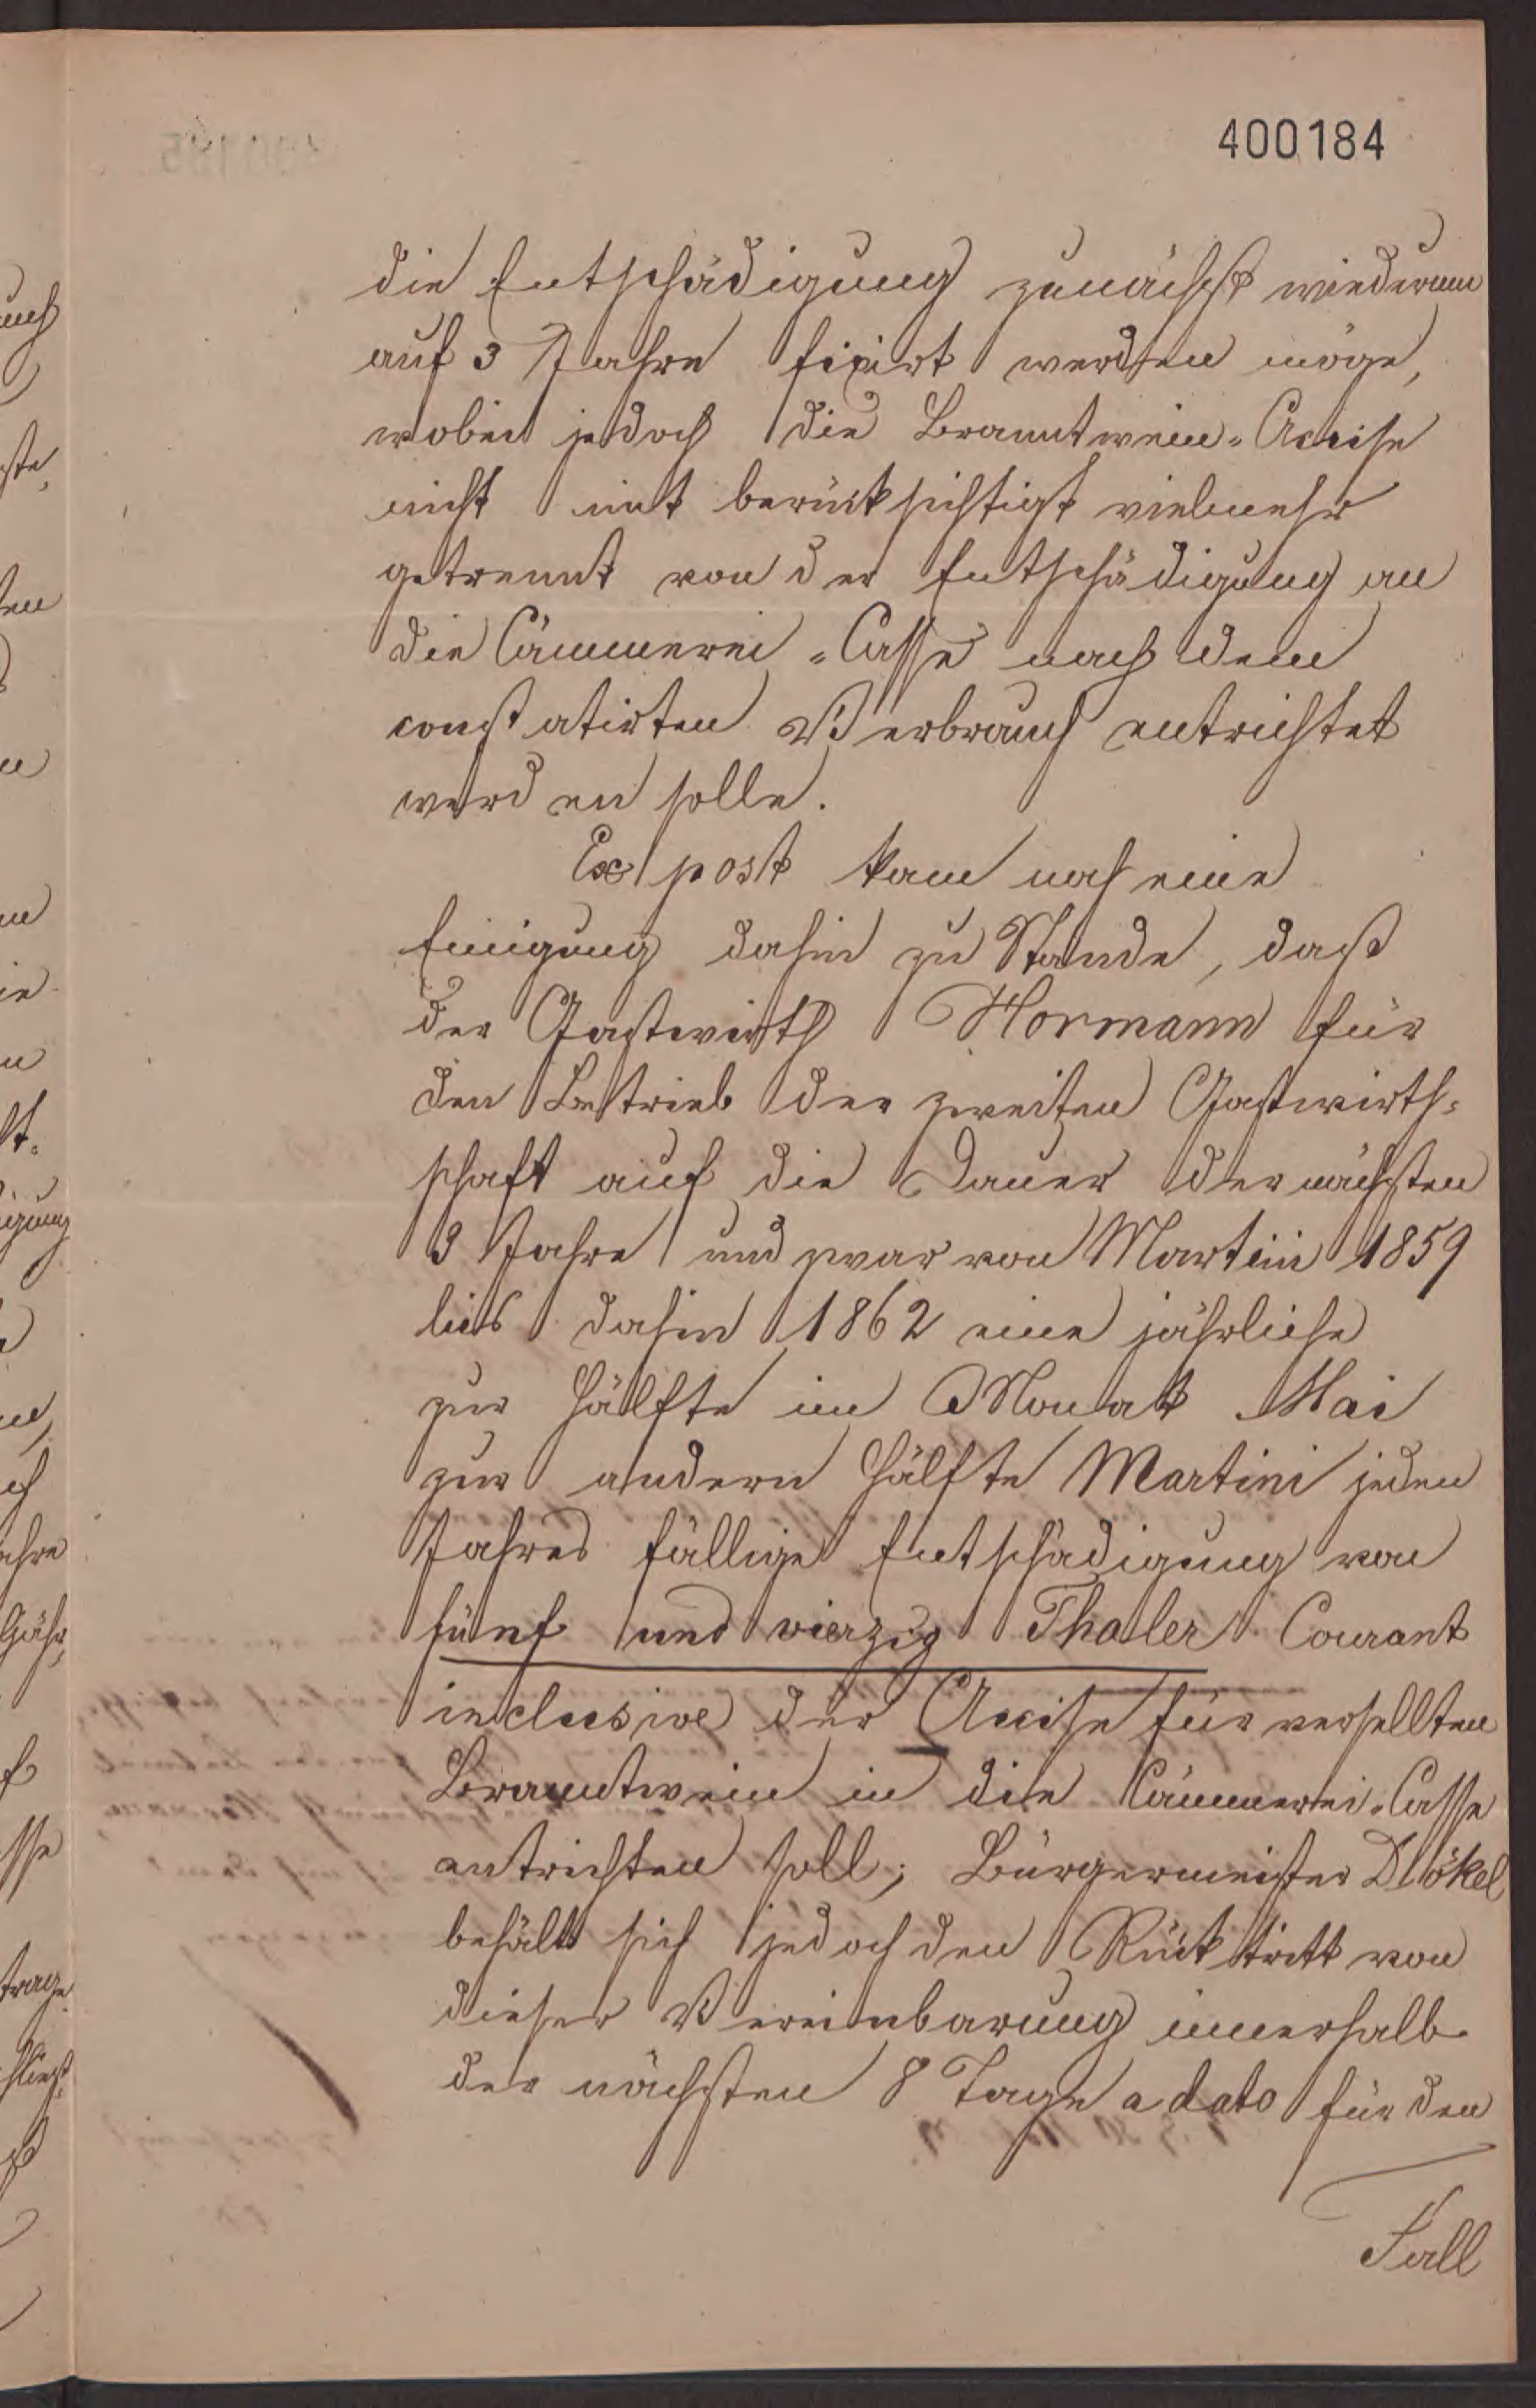 400184
die Entschädigung zunächst wiederum
auf 3 Jahre fixirt werden möge,
wobei jedoch die Branntwein-Accise
nicht mit berücksichtigt vielmehr
getrennt von der Entschädigung an
die Cämmerei-Casse nach dem
constatirten Verbrauch entrichtet
werden solle.
Ex post kam noch eine
Einigung dahin zu Stande, daß
der Gastwirth Hormann für
den Betrieb der zweiten Gastwirth-
schaft auf die Dauer der nächsten
3 Jahre und zwar von Martini 1859
bis dahin 1862 eine jährliche
zur Hälfte im Monat Mai
zur andern Hälfte Martini jeden
Jahres fällige Entschädigung von
fünf und vierzig Thaler Courant
inclusive der Accise für versellten
Branntwein in die Cämmerei-Casse
entrichten soll; Bürgermeister
behält sich jedoch den Rücktritt von
dieser Vereinbarung innerhalb
der nächsten 8 Tage a dato für den
Fall